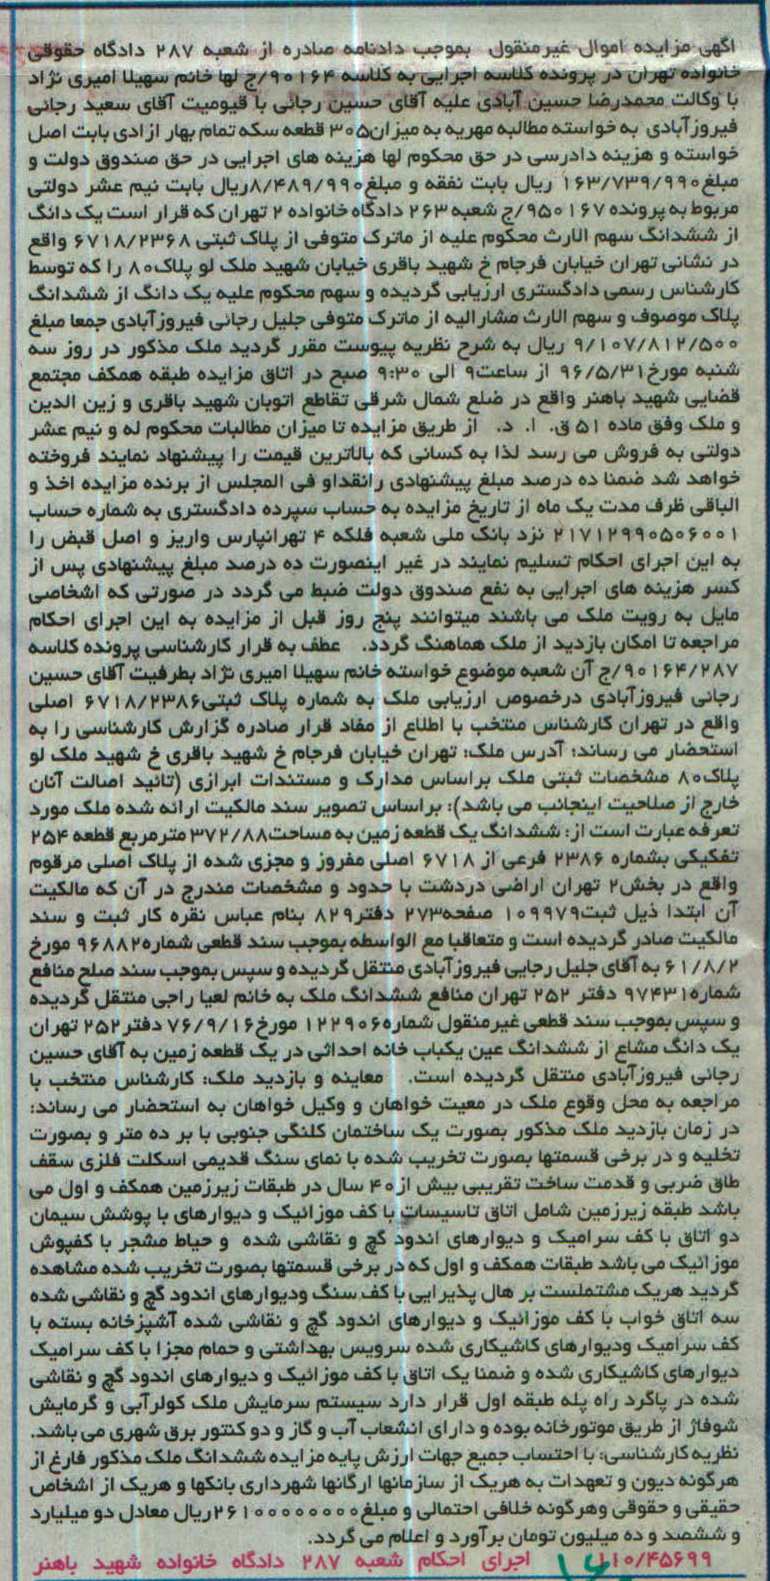 آگهی مزایده اموال غیرمنقول بموجب دادنامه صادره از شعبه ۲۸۷ دادگاه حقوقی
خانواده تهران در پرونده کلاسه اجرایی به کلاسه ۹۰۱۶۴/ج لها خانم سهیلا امیری نژاد
با وکالت محمدرضا حسین آبادی علیه آقای حسین رجائی با قیومیت آقای سعید رجائی
فیروزآبادی به خواسته مطالبه مهریه به میزان۳۰۵ قطعه سکه تمام بهار ازادی بابت اصل
خواسته و هزینه دادرسی در حق محکوم لها هزینه های اجرایی در حق صندوق دولت و
مبلغ۱۶۳/۷۳۹/۹۹۰ ریال بابت نفقه و مبلغ۸/۴۸۹/۹۹۰ریال بابت نیم عشر دولتی
مربوط به پرونده ۹۵۰۱۶۷/ج شعبه ۲۶۳ دادگاه خانواده ۲ تهران که قرار است یک دانگ
از ششدانگ سهم الارث محکوم علیه از ماترک متوفی از پلاک ثبتی ۶۷۱۸/۲۳۶۸ واقع
در نشانی تهران خیابان فرجام خ شهید باقری خیابان شهید ملک لو پلاک۸۰ را که توسط
کارشناس رسمی دادگستری ارزیابی گردیده و سهم محکوم علیه یک دانگ از ششدانگ
پلاک موصوف و سهم الارث مشارالیه از ماترک متوفی جلیل رجائی فیروزآبادی جمعا مبلغ
۹/۱۰۷/۸۱۲/۵۰۰ ریال به شرح نظریه پیوست مقرر گردید ملک مذکور در روز سه
شنبه مورخ۹۶/۵/۳۱ از ساعت۹ الی ۹:۳۰ صبح در اتاق مزایده طبقه همکف مجتمع
قضایی شهید باهنر واقع در ضلع شمال شرقی تقاطع اتوبان شهید باقری و زین الدین
و ملک وفق ماده ۵۱ ق. ا. د. از طریق مزایده تا میزان مطالبات محکوم له و نیم عشر
دولتی به فروش می رسد لذا به کسانی که بالاترین قیمت را پیشنهاد نمایند فروخته
خواهد شد ضمنا ده درصد مبلغ پیشنهادی رانقداو فی المجلس از برنده مزایده اخذ و
الباقی ظرف مدت یک ماه از تاریخ مزایده به حساب سپرده دادگستری به شماره حساب
۲۱۷۱۲۹۹۰۵۰۶۰۰۱ نزد بانک ملی شعبه فلکه ۴ تهرانپارس واریز و اصل قبض را
به این اجرای احکام تسلیم نمایند در غیر اینصورت ده درصد مبلغ پیشنهادی پس از
کسر هزینه های اجرایی به نفع صندوق دولت ضبط می گردد در صورتی که اشخاصی
مایل به رویت ملک می باشند میتوانند پنج روز قبل از مزایده به این اجرای احکام
مراجعه تا امکان بازدید از ملک هماهنگ گردد. عطف به قرار کارشناسی پرونده کلاسه
۹۰۱۶۴/۲۸۷/ج آن شعبه موضوع خواسته خانم سهیلا امیری نژاد بطرفیت آقای حسین
رجائی فیروزآبادی درخصوص ارزیابی ملک به شماره پلاک ثبتی۶۷۱۸/۲۳۸۶ اصلی
واقع در تهران کارشناس منتخب با اطلاع از مفاد قرار صادره گزارش کارشناسی را به
استحضار می رساند؛ آدرس ملک: تهران خیابان فرجام خ شهید باقری خ شهید ملک لو
پلاک۸۰ مشخصات ثبتی ملک براساس مدارک و مستندات ابرازی (تائید اصالت آنان
خارج از صلاحیت اینجانب می باشد): براساس تصویر سند مالکیت ارائه شده ملک مورد
تعرفه عبارت است از: ششدانگ یک قطعه زمین به مساحت۳۷۲/۸۸ مترمربع قطعه ۲۵۴
تفکیکی بشماره ۲۳۸۶ فرعی از ۶۷۱۸ اصلی مفروز و مجزی شده از پلاک اصلی مرقوم
واقع در بخش۲ تهران اراضی دردشت با حدود و مشخصات مندرج در آن که مالکیت
آن ابتدا ذیل ثبت۱۰۹۹۷۹ صفحه۲۷۳ دفتر۸۲۹ بنام عباس نقره کار ثبت و سند
مالکیت صادر گردیده است و متعاقبا مع الواسطه بموجب سند قطعی شماره۹۶۸۸۲ مورخ
۶۱/۸/۲ به آقای جلیل رجایی فیروزآبادی منتقل گردیده و سپس بموجب سند صلح منافع
شماره۹۷۴۳۱ دفتر ۲۵۲ تهران منافع ششدانگ ملک به خانم لعیا راجی منتقل گردیده
و سپس بموجب سند قطعی غیرمنقول شماره۱۲۲۹۰۶ مورخ۷۶/۹/۱۶ دفتر۲۵۲ تهران
یک دانگ مشاع از ششدانگ عین یکباب خانه احداثی در یک قطعه زمین به آقای حسین
رجائی فیروزآبادی منتقل گردیده است. معاینه و بازدید ملک: کارشناس منتخب با
مراجعه به محل وقوع ملک در معیت خواهان و وکیل خواهان به استحضار می رساند:
در زمان بازدید ملک مذکور بصورت یک ساختمان کلنگی جنوبی با بر ده متر و بصورت
تخلیه و در برخی قسمتها بصورت تخریب شده با نمای سنگ قدیمی اسکلت فلزی سقف
طاق ضربی و قدمت ساخت تقریبی بیش از۴۰ سال در طبقات زیرزمین همکف و اول می
باشد طبقه زیرزمین شامل اتاق تاسیسات با کف موزائیک و دیوارهای با پوشش سیمان
دو اتاق با کف سرامیک و دیوارهای اندود گچ و نقاشی شده و حیاط مشجر با کفپوش
موزائیک می باشد طبقات همکف و اول که در برخی قسمتها بصورت تخریب شده مشاهده
گردید هریک مشتملست بر هال پذیرایی با کف سنگ ودیوارهای اندود گچ و نقاشی شده
سه اتاق خواب با کف موزائیک و دیوارهای اندود گچ و نقاشی شده آشپزخانه بسته با
کف سرامیک ودیوارهای کاشیکاری شده سرویس بهداشتی و حمام مجزا با کف سرامیک
دیوارهای کاشیکاری شده و ضمنا یک اتاق با کف موزائیک و دیوارهای اندود گچ و نقاشی
شده در پاگرد راه پله طبقه اول قرار دارد سیستم سرمایش ملک کولرآبی و گرمایش
شوفاژ از طریق موتورخانه بوده و دارای انشعاب آب و گاز و دو کنتور برق شهری می باشد.
نظریه کارشناسی: با احتساب جمیع جهات ارزش پایه مزایده ششدانگ ملک مذکور فارغ از
هرگونه دیون و تعهدات به هریک از سازمانها ارگانها شهرداری بانکها و هریک از اشخاص
حقیقی و حقوقی وهرگونه خلافی احتمالی و مبلغ۲۶۱۰۰۰۰۰۰۰۰ریال معادل دو میلیارد
و ششصد و ده میلیون تومان برآورد و اعلام می گردد.
۱۱۰/۴۵۶۹۹ اجرای احکام شعبه ۲۸۷ دادگاه خانواده شهید باهنر